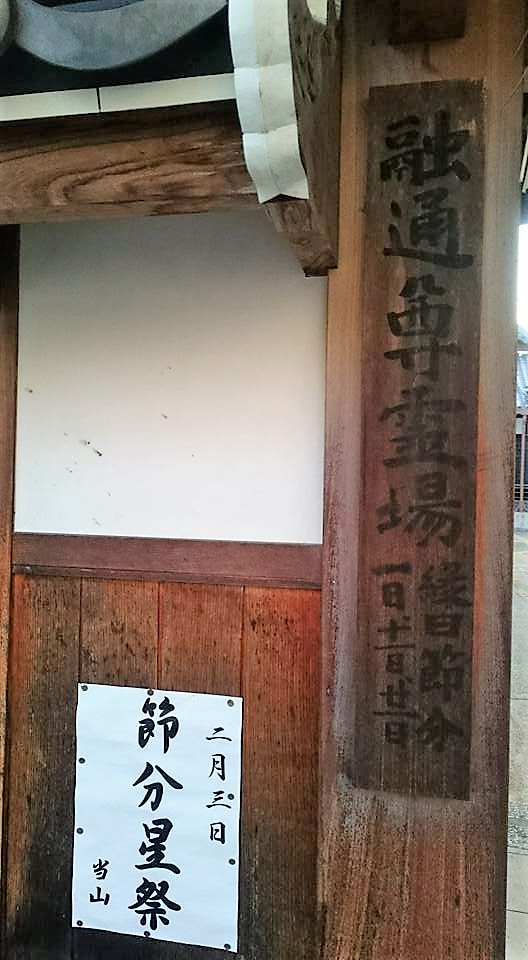 融通尊霊場
縁日節分
一日十一日廿一日
二月三日
節分星祭
当山